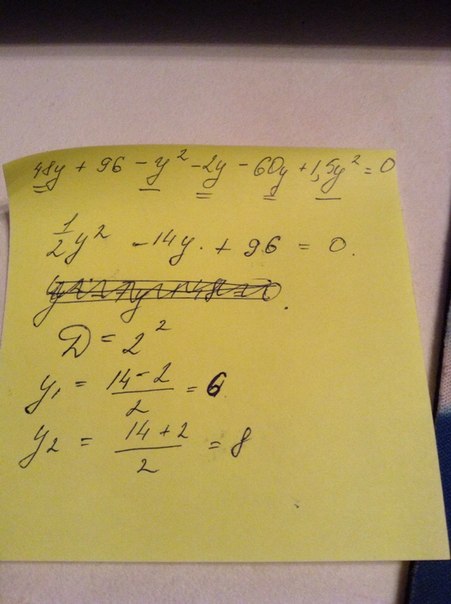 48y + 96 - y² - 2y - 60y + 1,5y² = 0
1/2 y² - 14y. + 96 = 0.
D = 2²
y₁ = (14-2)/2 = 6
y₂ = (14+2)/2 = 8